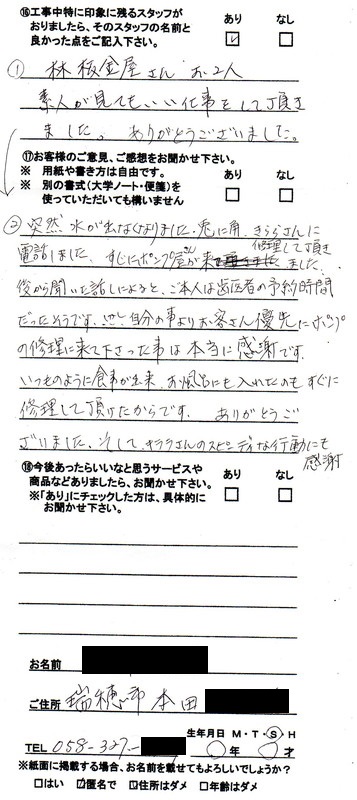 ⑯工事中特に印象に残るスタッフが あり なし
おりましたら、そのスタッフの名前と
良かった点をご記入下さい。
① 林板金屋さん お2人
素人が見てもいい仕事をして頂き
ました。 ありがとうございました。
⑰お客様のご意見、ご感想をお聞かせ下さい。
※ 用紙や書き方は自由です。 あり なし
※ 別の書式(大学ノート・便箋)を
使っていただいても構いません
② 突然、水が出なくなりました。兎に角、きららさんに
電話しました。すぐにポンプ屋さんが来て修理して頂きました。
後から聞いた話しによると、ご本人は歯医者の予約時間
だったそうです。しかし自分の事よりお客さん優先にポンプ
の修理に来て下さった事は本当に感謝です。
いつものように食事が出来、お風呂にも入れたのもすぐに
修理して頂けたからです。 ありがとうご
ざいました。そして、キララさんのスピーディな行動にも
感謝
⑱今後あったらいいなと思うサービスや あり なし
商品などありましたら、お聞かせ下さい。
※「あり」にチェックした方は、具体的に
お聞かせ下さい。
お名前
ご住所 瑞穂市本田
生年月日 M・T・S・H
TEL 058-327- 年 才
※紙面に掲載する場合、お名前を載せてもよろしいでしょうか?
□はい ☑匿名で □住所はダメ □年齢はダメ